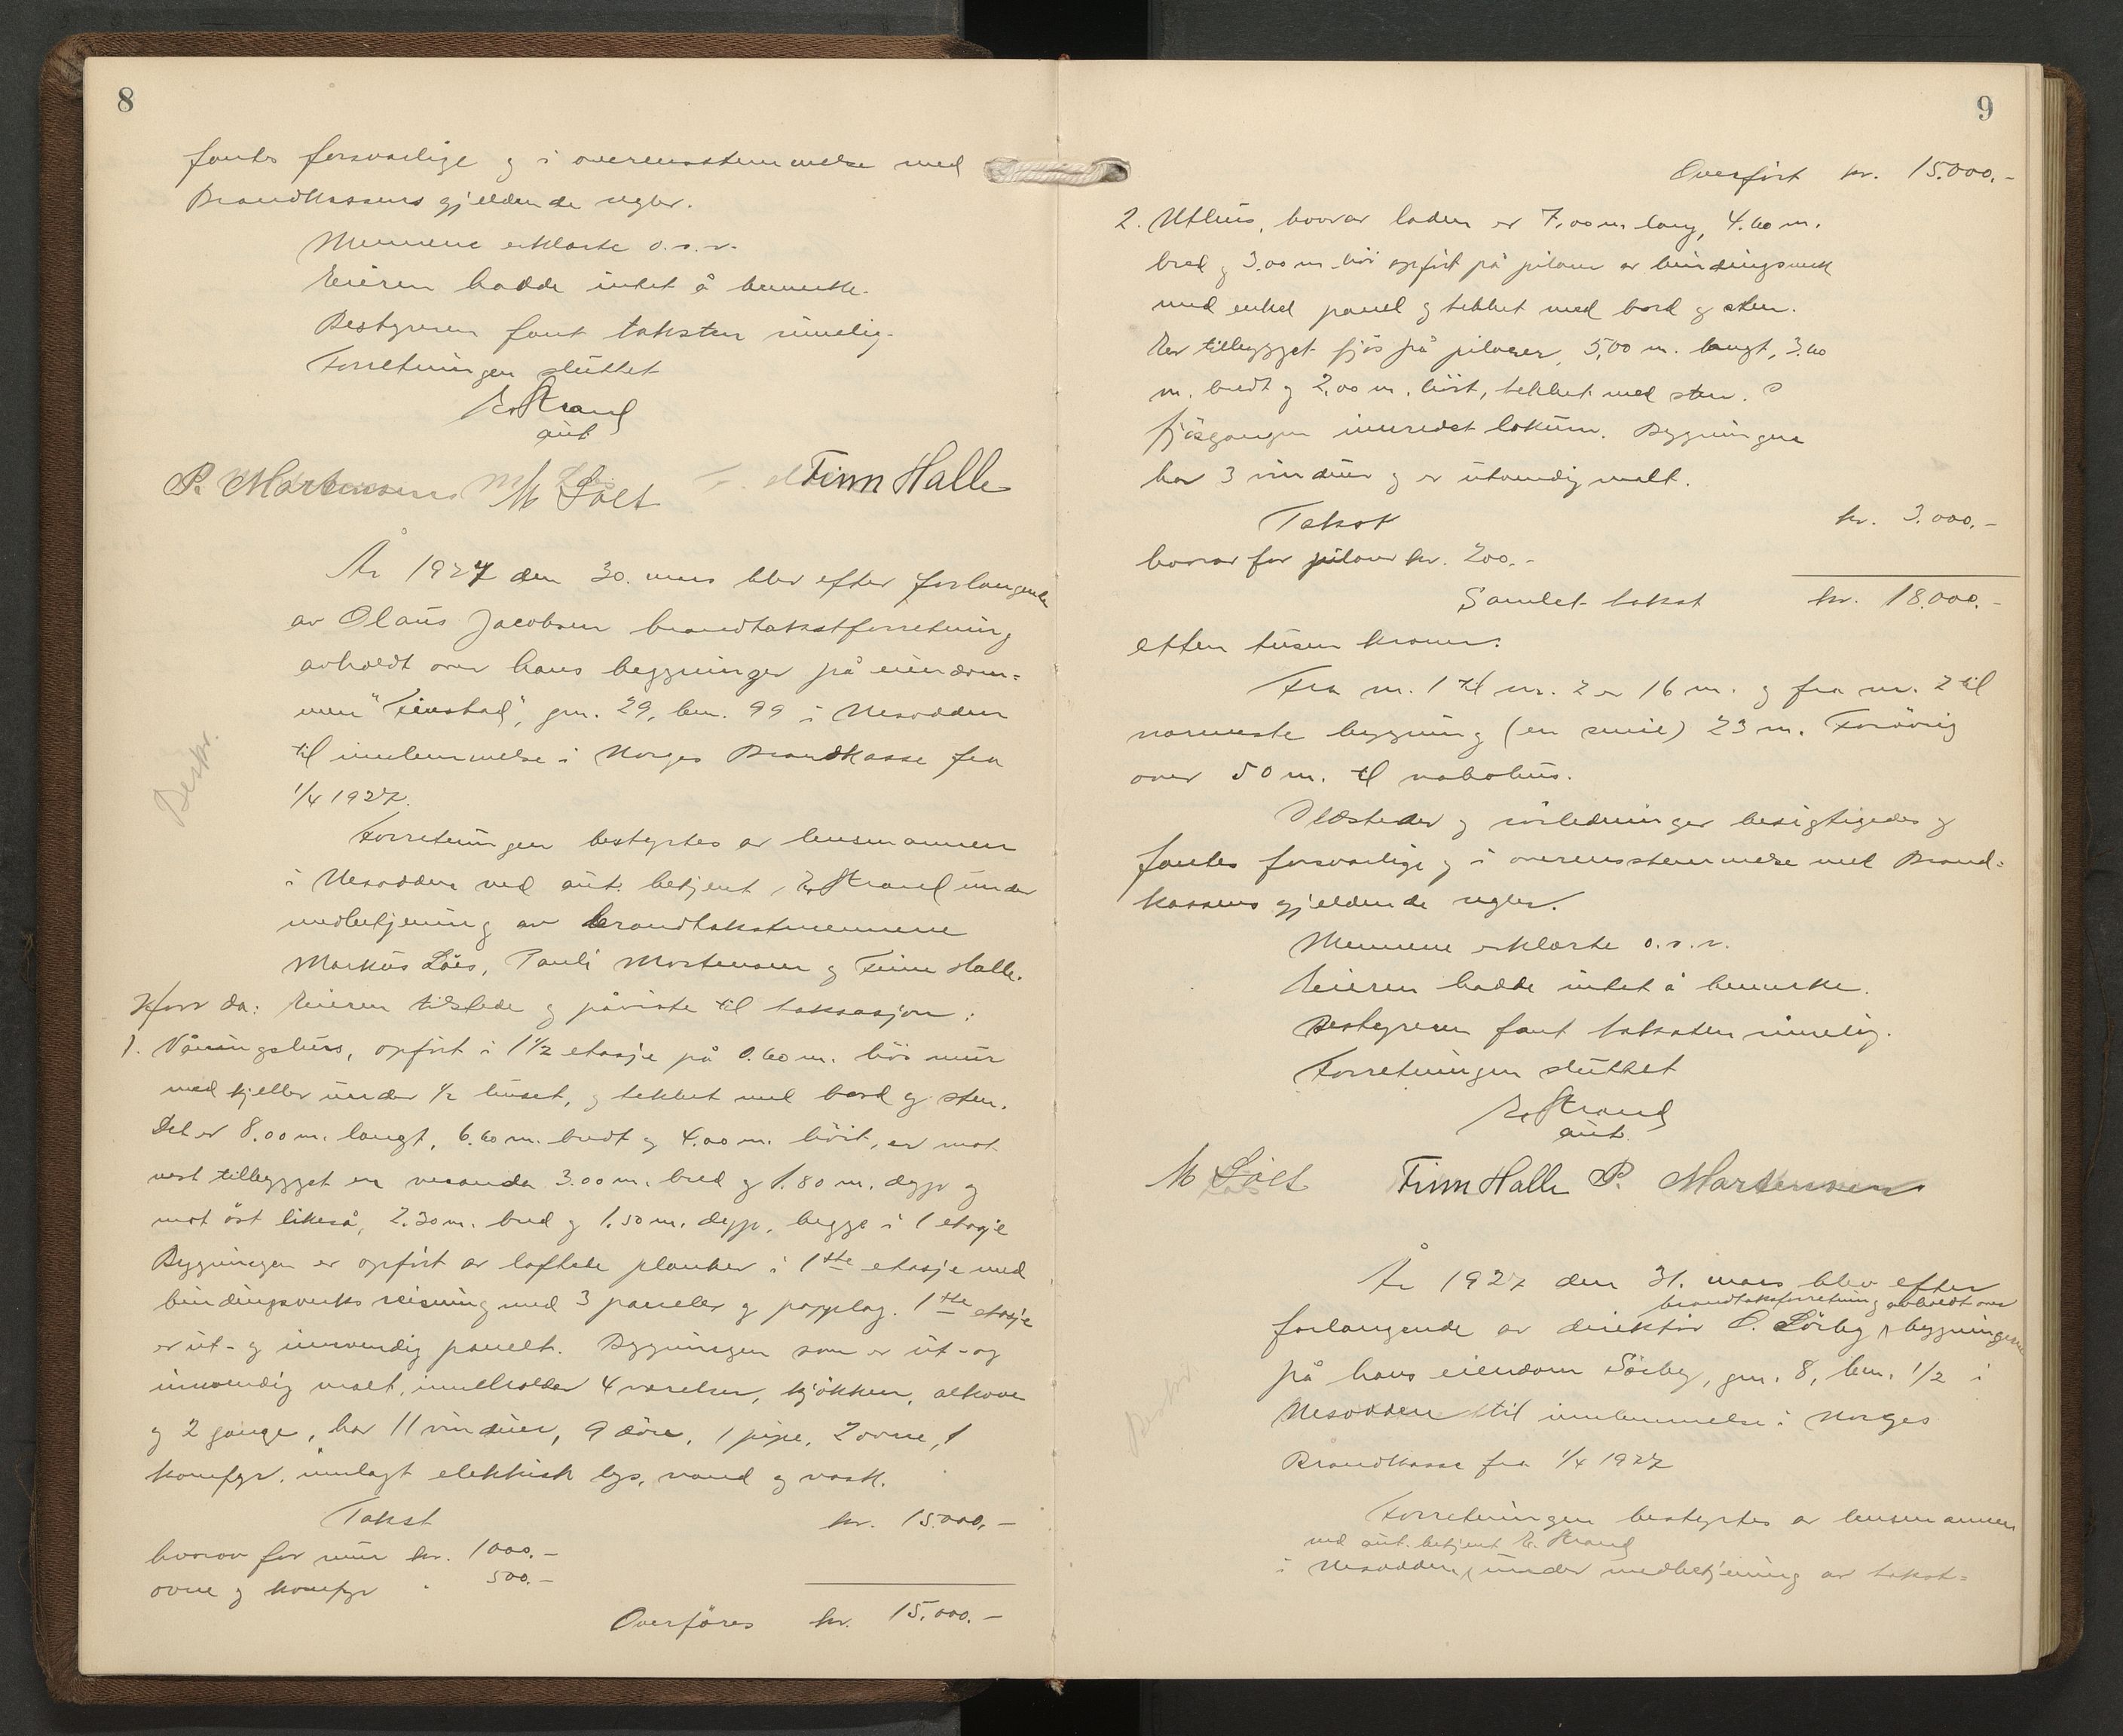 8
fantes forsvarlige g i overensstemmelse med
Brandkassens gjeldende regler.
Mennene erklærte o.s.v.
Eieren hadde intet å bemerke.
Bestyreren fant taksten rimelig.
Forretningen sluttet
E. Strand
aut.
P. Martensens M Löes Finn Halle
År 1927 den 30. mars blev efter forlangende
av Olaus Jacobsen brandtakstforretning
avholdt over hans bygninger på eiendom-
men "Finstad", gnr. 29, bnr. 99 i Nesodden
til innlemmelse i Norges Brandkasse fra
1/4 1927.
Beskr.
Forretningen bestyrtes av lensmannen
i Nesodden ved aut. betjent E. Strand under
medbetjening av brandtakstmennene
Markus Löes, Pauli Mortensen g Finn Halle.
Hvor da: Eieren tilstede g påviste til taksasjon:
1. Våningshus, opfört i 1 1/2 etasje på 0.60 m. höi mur
med kjeller under 1/2 huset, g tekket med bord g sten.
Det er 8.00 m. langt, 6.60 m. bredt g 4.00 m. höit, er mot
vest tilbygget en veranda 3.00 m. bred g 1.80 m. dyp g
mot öst likeså, 2.30 m. bred g 1.50 m. dyp, begge i 1 etasje
Bygningen er opfört av laftede planker i 1ste etasje med
bindingsverks reisning med 3 paneler g papplag. 1ste etasje
er ut- g innvendig panelt. Bygningen som er ut- og
innvendig malt, inneholder 4 værelser, kjökken, alkove
g 2 gange, har 11 vinduer, 9 döre, 1 pipe, 2 ovne, 1
komfyr, innlagt elektrisk lys, vand g vask.
Takst kr. 15.000.-
hvorav for mur kr. 1000.-
ovne g komfyr " 500.-
Overföres kr. 15.000.-
9
Overfört kr. 15.000.-
2. Uthus, hvorav laden er 7,00 m. lang, 4.60 m.
bred g 3.00 m. höi opfört på pilarer av bindingsverk
med enkel panel g tekket med bord g sten.
Er tilbygget fjös på pilarer, 5,00 m. langt, 3.60
m. bredt g 2,00 m. höit, tekket med sten. I
fjösgangen innredet lokum. Bygningen
har 3 vinduer g er utvendig malt.
Takst kr. 3.000.-
hvorav for pilarer kr. 200.-
Samlet takst kr. 18.000.-
atten tusen kroner.
Fra nr. 1 til nr. 2 er 16 m. g fra nr. 2 til
nærmeste bygning (en smie) 23 m. Forövrig
over 50 m. til nabohus.
Ildsteder g rörledninger besigtigedes g
fantes forsvarlige g i overensstemmelse med Brand-
kassens gjeldende regler.
Mennene erklærte o.s.v.
Eieren hadde intet å bemerke.
Bestyreren fant taksten rimelig.
Forretningen sluttet
E. Strand
aut.
M Löes Finn Halle P. Martensen
År 1927 den 31. mars blev efter
brandtakstforretning avholdt over
forlangende av direktör O. Sörby bygningene
på hans eiendom Sörby, gnr. 8, bnr. 1/2 i
Nesodden til innlemmelse i Norges
Brandkasse fra 1/4 1927
Beskr.
Forretningen bestyrtes av lensmannen
ved aut. betjent E. Strand
i Nesodden, under medbetjening av takst-